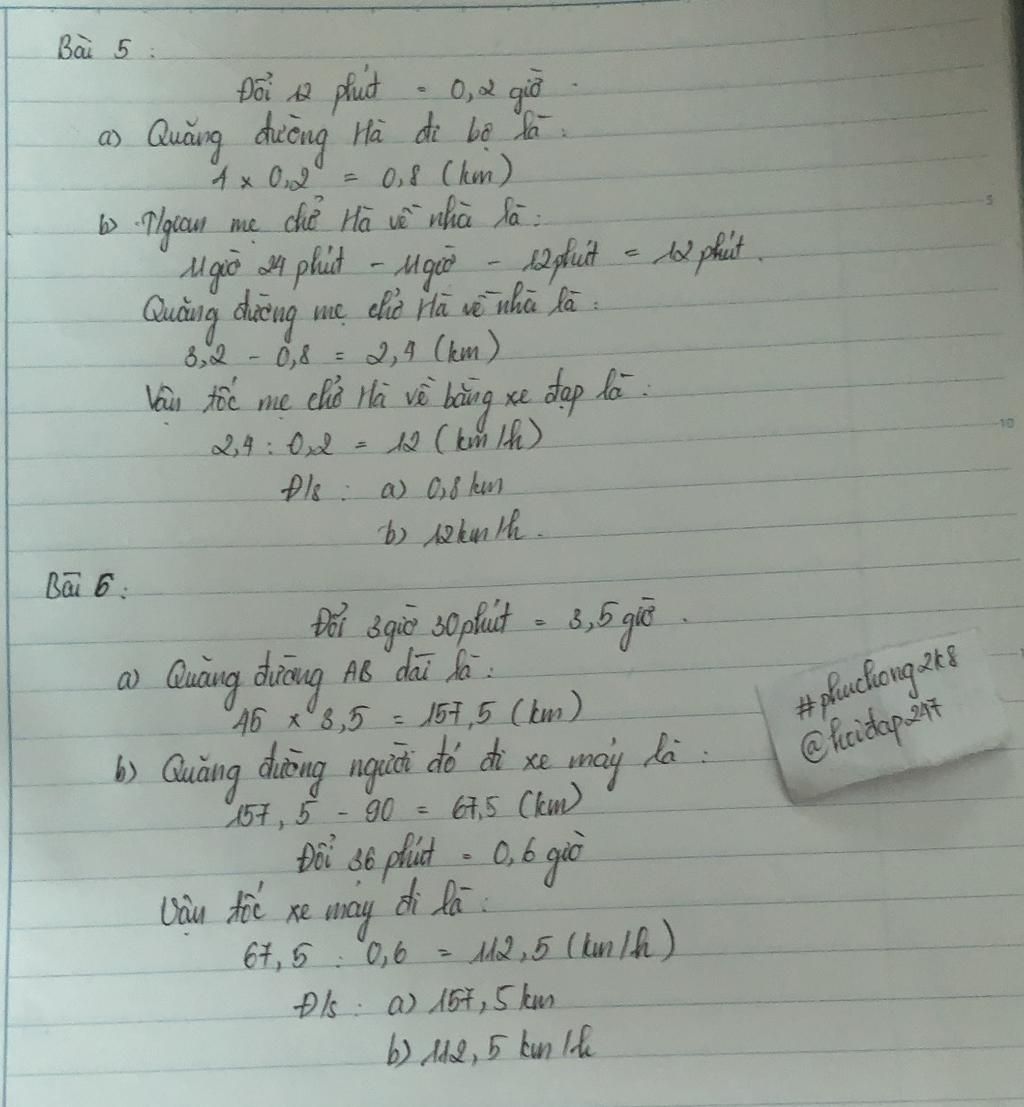 Bài 5 :
Đổi 12 phút = 0,2 giờ
a) Quãng đường Hà đi bộ là :
4 x 0,2 = 0,8 (km)
b) T/gian mẹ chở Hà về nhà là :
11 giờ 24 phút - 11 giờ - 12 phút = 12 phút.
Quãng đường mẹ chở Hà về nhà là :
3,2 - 0,8 = 2,4 (km)
Vận tốc mẹ chở Hà về bằng xe đạp là :
2,4 : 0,2 = 12 (km/h)
Đ/s : a) 0,8 km
b) 12 km/h .
Bài 6 :
Đổi 3 giờ 30 phút = 3,5 giờ .
a) Quãng đường AB dài là :
45 x 3,5 = 157,5 (km)
b) Quãng đường người đó đi xe máy là :
157,5 - 90 = 67,5 (km)
Đổi 36 phút = 0,6 giờ
Vận tốc xe máy đi là :
67,5 : 0,6 = 112,5 (km/h)
Đ/s : a) 157,5 km
b) 112,5 km/h
#phuchong2k8
@hoidap247
5
10